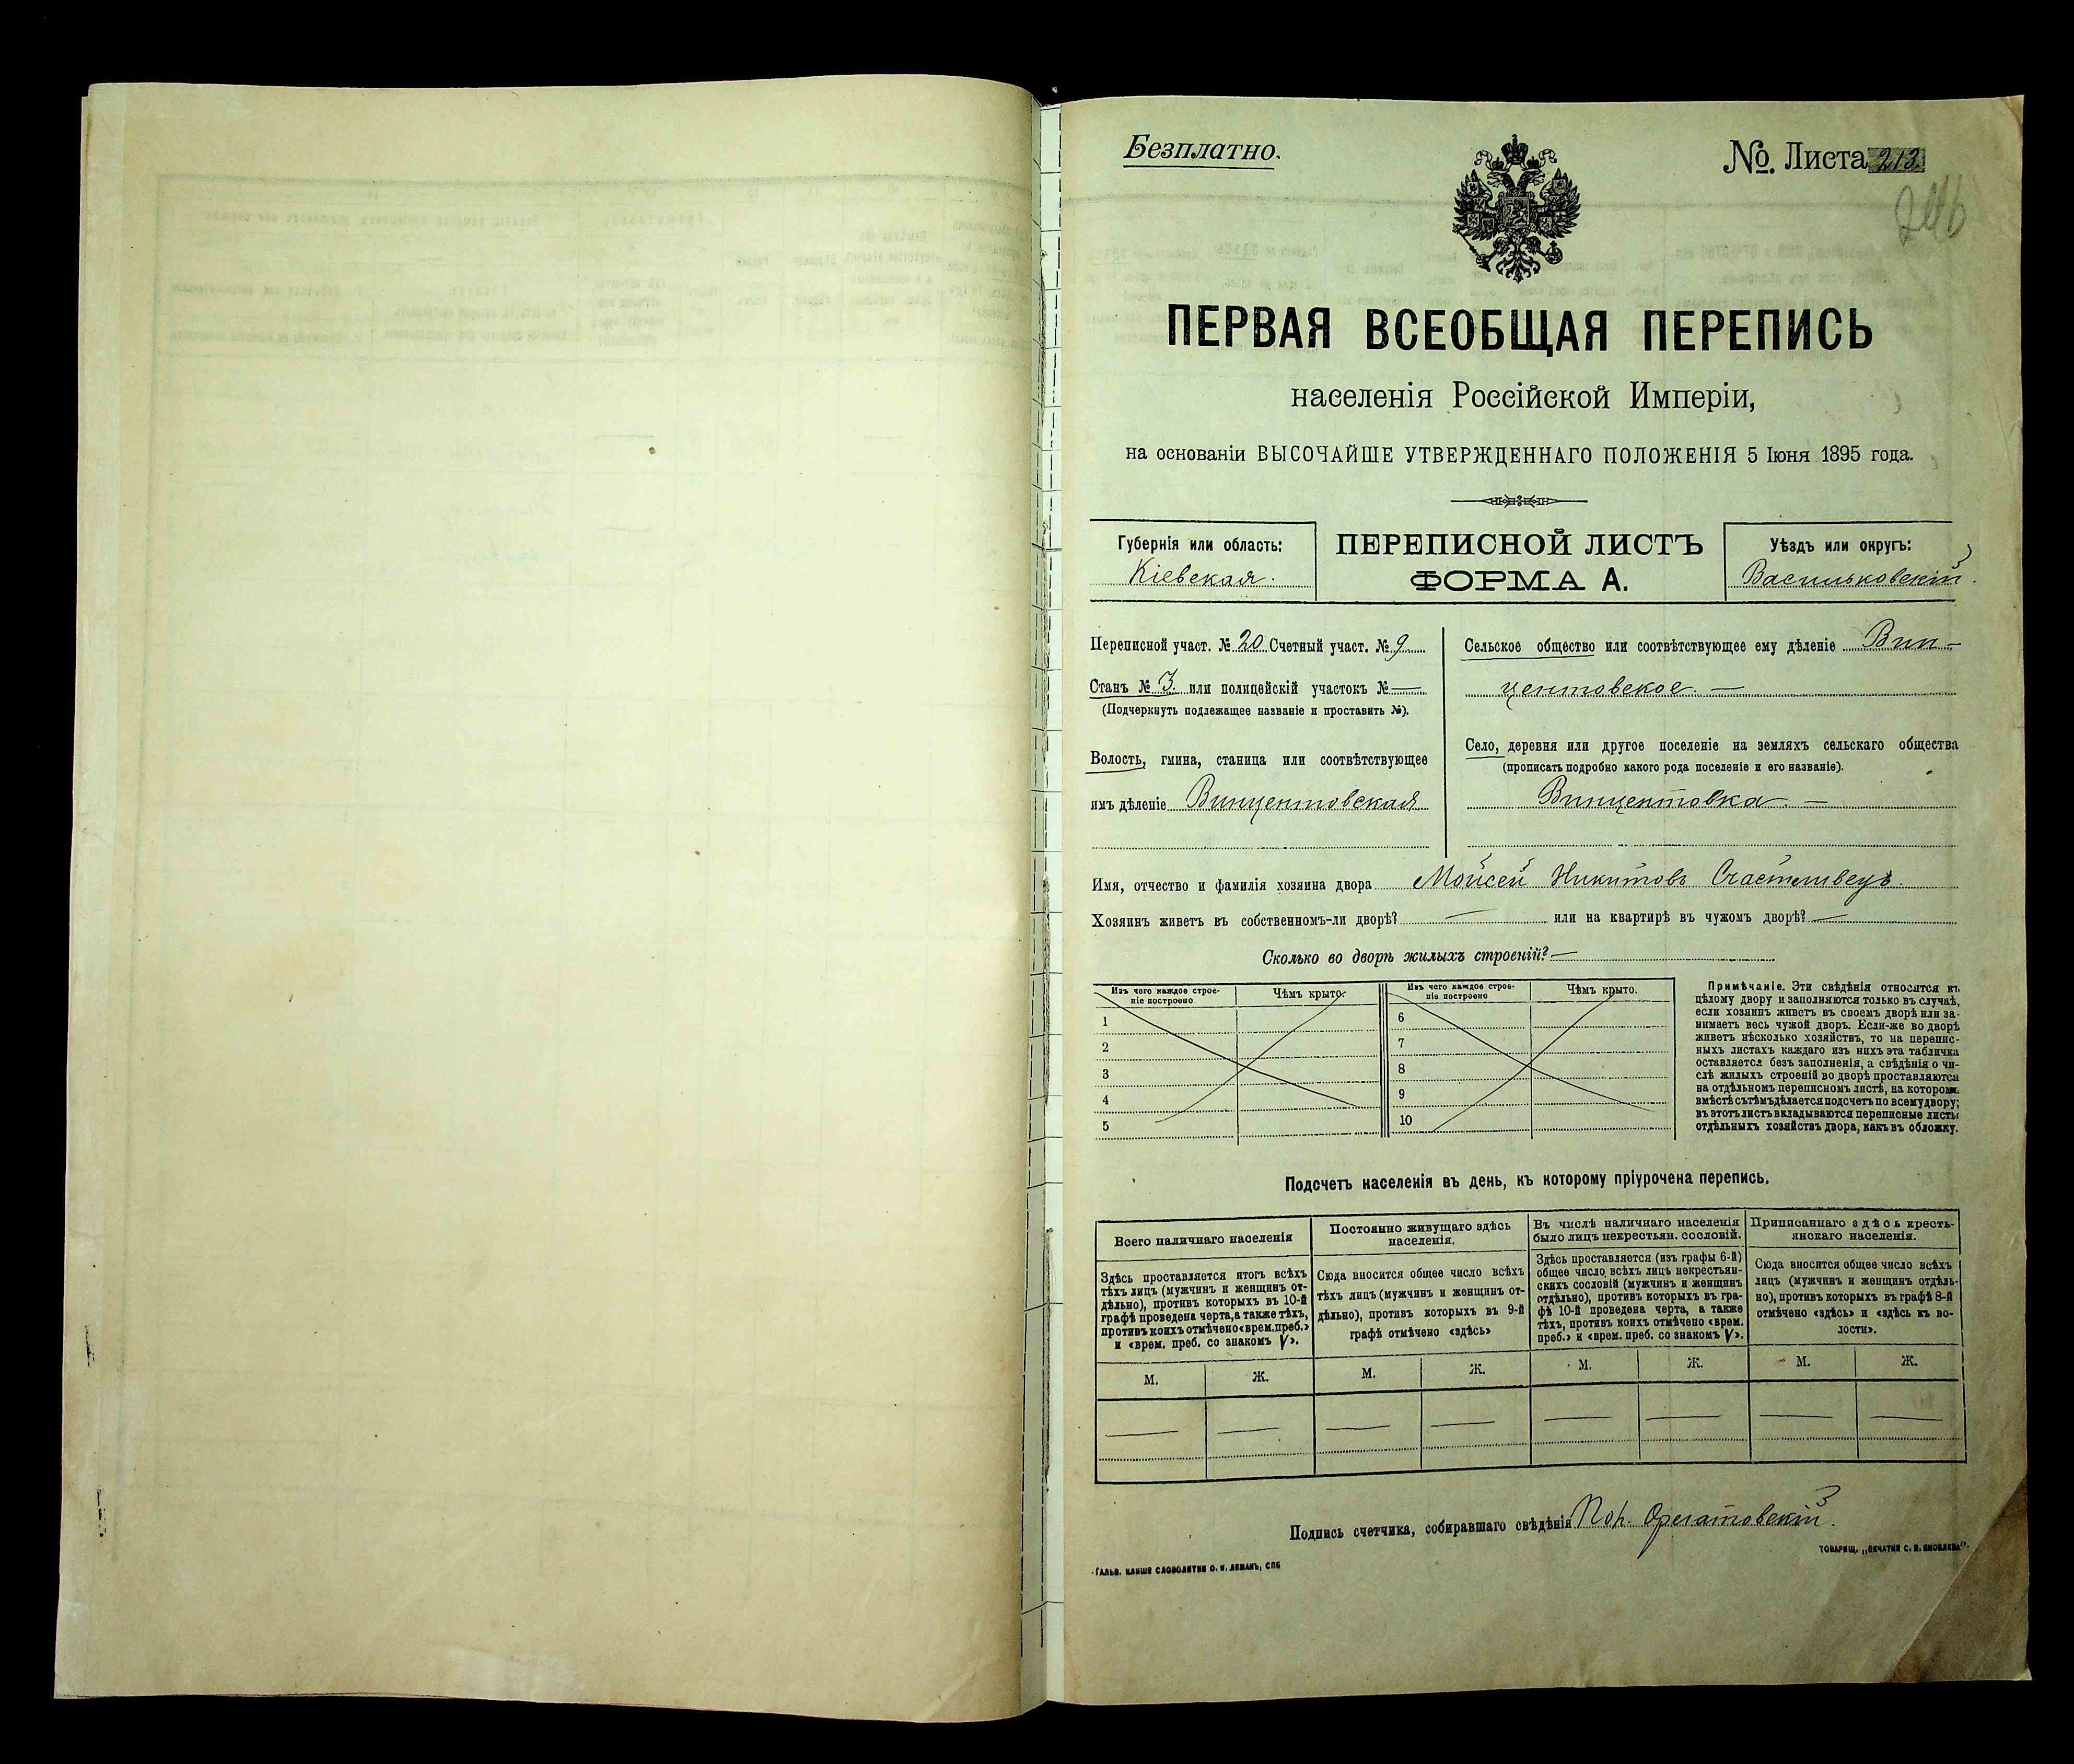 Безплатно.
№. Листа 213.
ПЕРВАЯ ВСЕОБЩАЯ ПЕРЕПИСЬ
населенія Россійской Имперіи,
на основаніи ВЫСОЧАЙШЕ УТВЕРЖДЕННАГО ПОЛОЖЕНІЯ 5 Іюня 1895 года.
Губернія или область:
Кіевская.
ПЕРЕПИСНОЙ ЛИСТЪ
ФОРМА А.
Уѣздъ или округъ:
Васильковскій.
Переписной участ. № 20 Счетный участ. № 9
Станъ № 3. или полицейскій участокъ № —
(Подчеркнуть подлежащее названіе и проставить №).
Волость, гмина, станица или соотвѣтствующее
имъ дѣленіе Винцентовская
Сельское общество или соотвѣтствующее ему дѣленіе Вин-
центовское. —
Село, деревня или другое поселеніе на земляхъ сельскаго общества
(прописать подробно какого рода поселеніе и его названіе).
Винцентовка. —
Имя, отчество и фамилія хозяина двора Мойсей Никитовъ Счастливецъ.
Хозяинъ живетъ въ собственномъ-ли дворѣ? — или на квартирѣ въ чужомъ дворѣ? —
Сколько во дворѣ жилыхъ строеній? —
Изъ чего каждое строе-
ніе построено
Чѣмъ крыто.
1
2
3
4
5
Изъ чего каждое строе-
ніе построено
Чѣмъ крыто.
6
7
8
9
10
Примѣчаніе. Эти свѣдѣнія относятся къ
цѣлому двору и заполняются только въ случаѣ,
если хозяинъ живетъ въ своемъ дворѣ или за-
нимаетъ весь чужой дворъ. Если-же во дворѣ
живетъ нѣсколько хозяйствъ, то на перепис-
ныхъ листахъ каждаго изъ нихъ эта табличка
оставляется безъ заполненія, а свѣдѣнія о чи-
слѣ жилыхъ строеній во дворѣ проставляются
на отдѣльномъ переписномъ листѣ, на которомъ
вмѣстѣ съ тѣмъ дѣлается подсчетъ по всему двору;
въ этотъ листъ вкладываются переписные листы
отдѣльныхъ хозяйствъ двора, какъ въ обложку.
Подсчетъ населенія въ день, къ которому пріурочена перепись.
Всего наличнаго населенія
Здѣсь проставляется итогъ всѣхъ
тѣхъ лицъ (мужчинъ и женщинъ от-
дѣльно), противъ которыхъ въ 10-й
графѣ проведена черта, а также тѣхъ,
противъ коихъ отмѣчено «врем. преб.»
и «врем. преб. со знакомъ V».
М. Ж.
— —
Постоянно живущаго здѣсь
населенія.
Сюда вносится общее число всѣхъ
тѣхъ лицъ (мужчинъ и женщинъ от-
дѣльно), противъ которыхъ въ 9-й
графѣ отмѣчено «здѣсь»
М. Ж.
— —
Въ числѣ наличнаго населенія
было лицъ некрестьян. сословій.
Здѣсь проставляется (изъ графы 6-й)
общее число всѣхъ лицъ некрестьян-
скихъ сословій (мужчинъ и женщинъ
отдѣльно), противъ которыхъ въ гра-
фѣ 10-й проведена черта, а также
тѣхъ, противъ коихъ отмѣчено «врем.
преб.» и «врем. преб. со знакомъ V».
М. Ж.
— —
Приписаннаго здѣсь кресть-
янскаго населенія.
Сюда вносится общее число всѣхъ
лицъ (мужчинъ и женщинъ отдѣль-
но), противъ которыхъ въ графѣ 8-й
отмѣчено «здѣсь» и «здѣсь къ во-
лости».
М. Ж.
— —
Подпись счетчика, собиравшаго свѣдѣнія
ГАЛЬВ. КЛИШЕ СЛОВОЛИТНИ О. И. ЛЕМАНЪ, СПБ
ТОВАРИЩ. „ПЕЧАТНЯ С. П. ЯКОВЛЕВА".